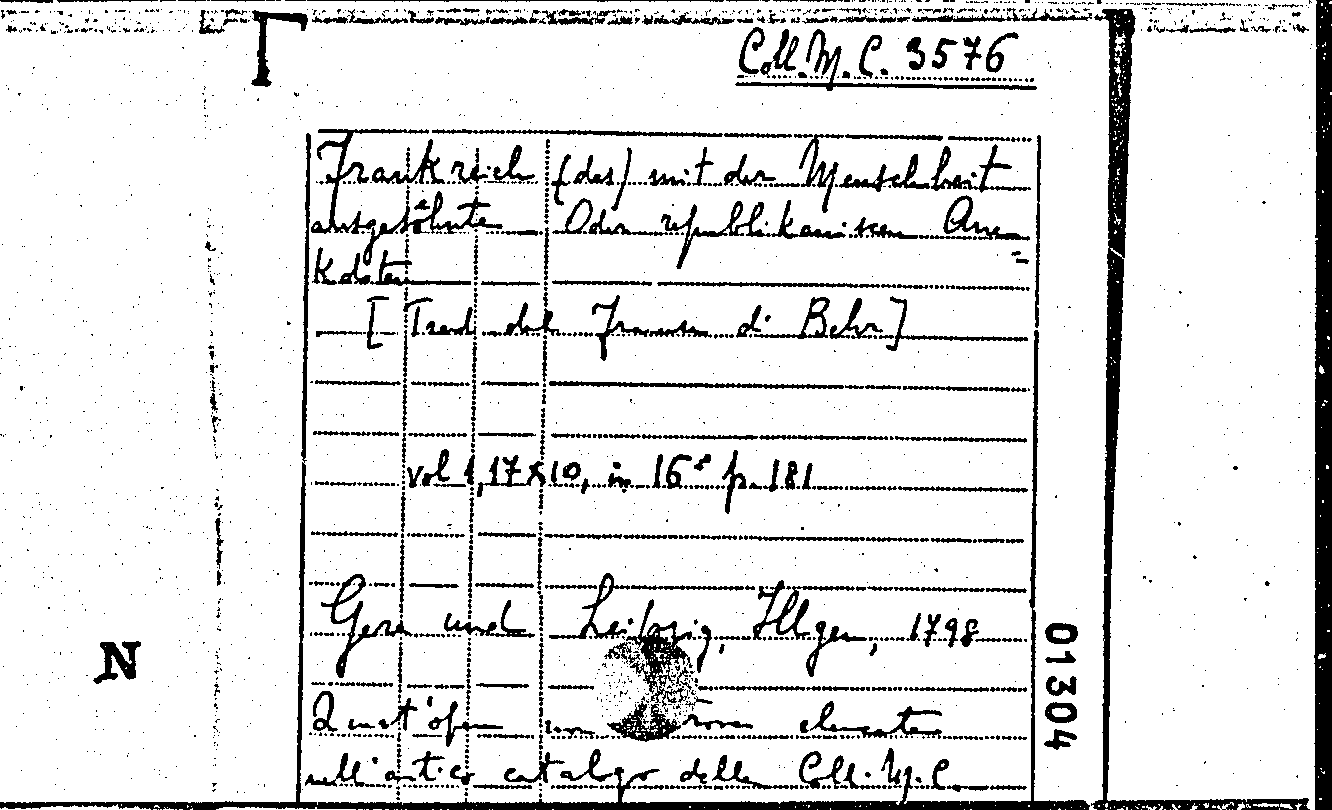 Coll. M. C. 3576
Frankreich (das) mit der Menschheit
ausgesöhnte Oder republikanischen Ane=
kdoten
[Trad dal Francese di Behr]
vol 1, 17x10, in 16° p. 181
Gera und Leipzig, Illgen, 1798
N
01304
Quest'opera non elencata
nell'antico catalogo della Coll. M. C.